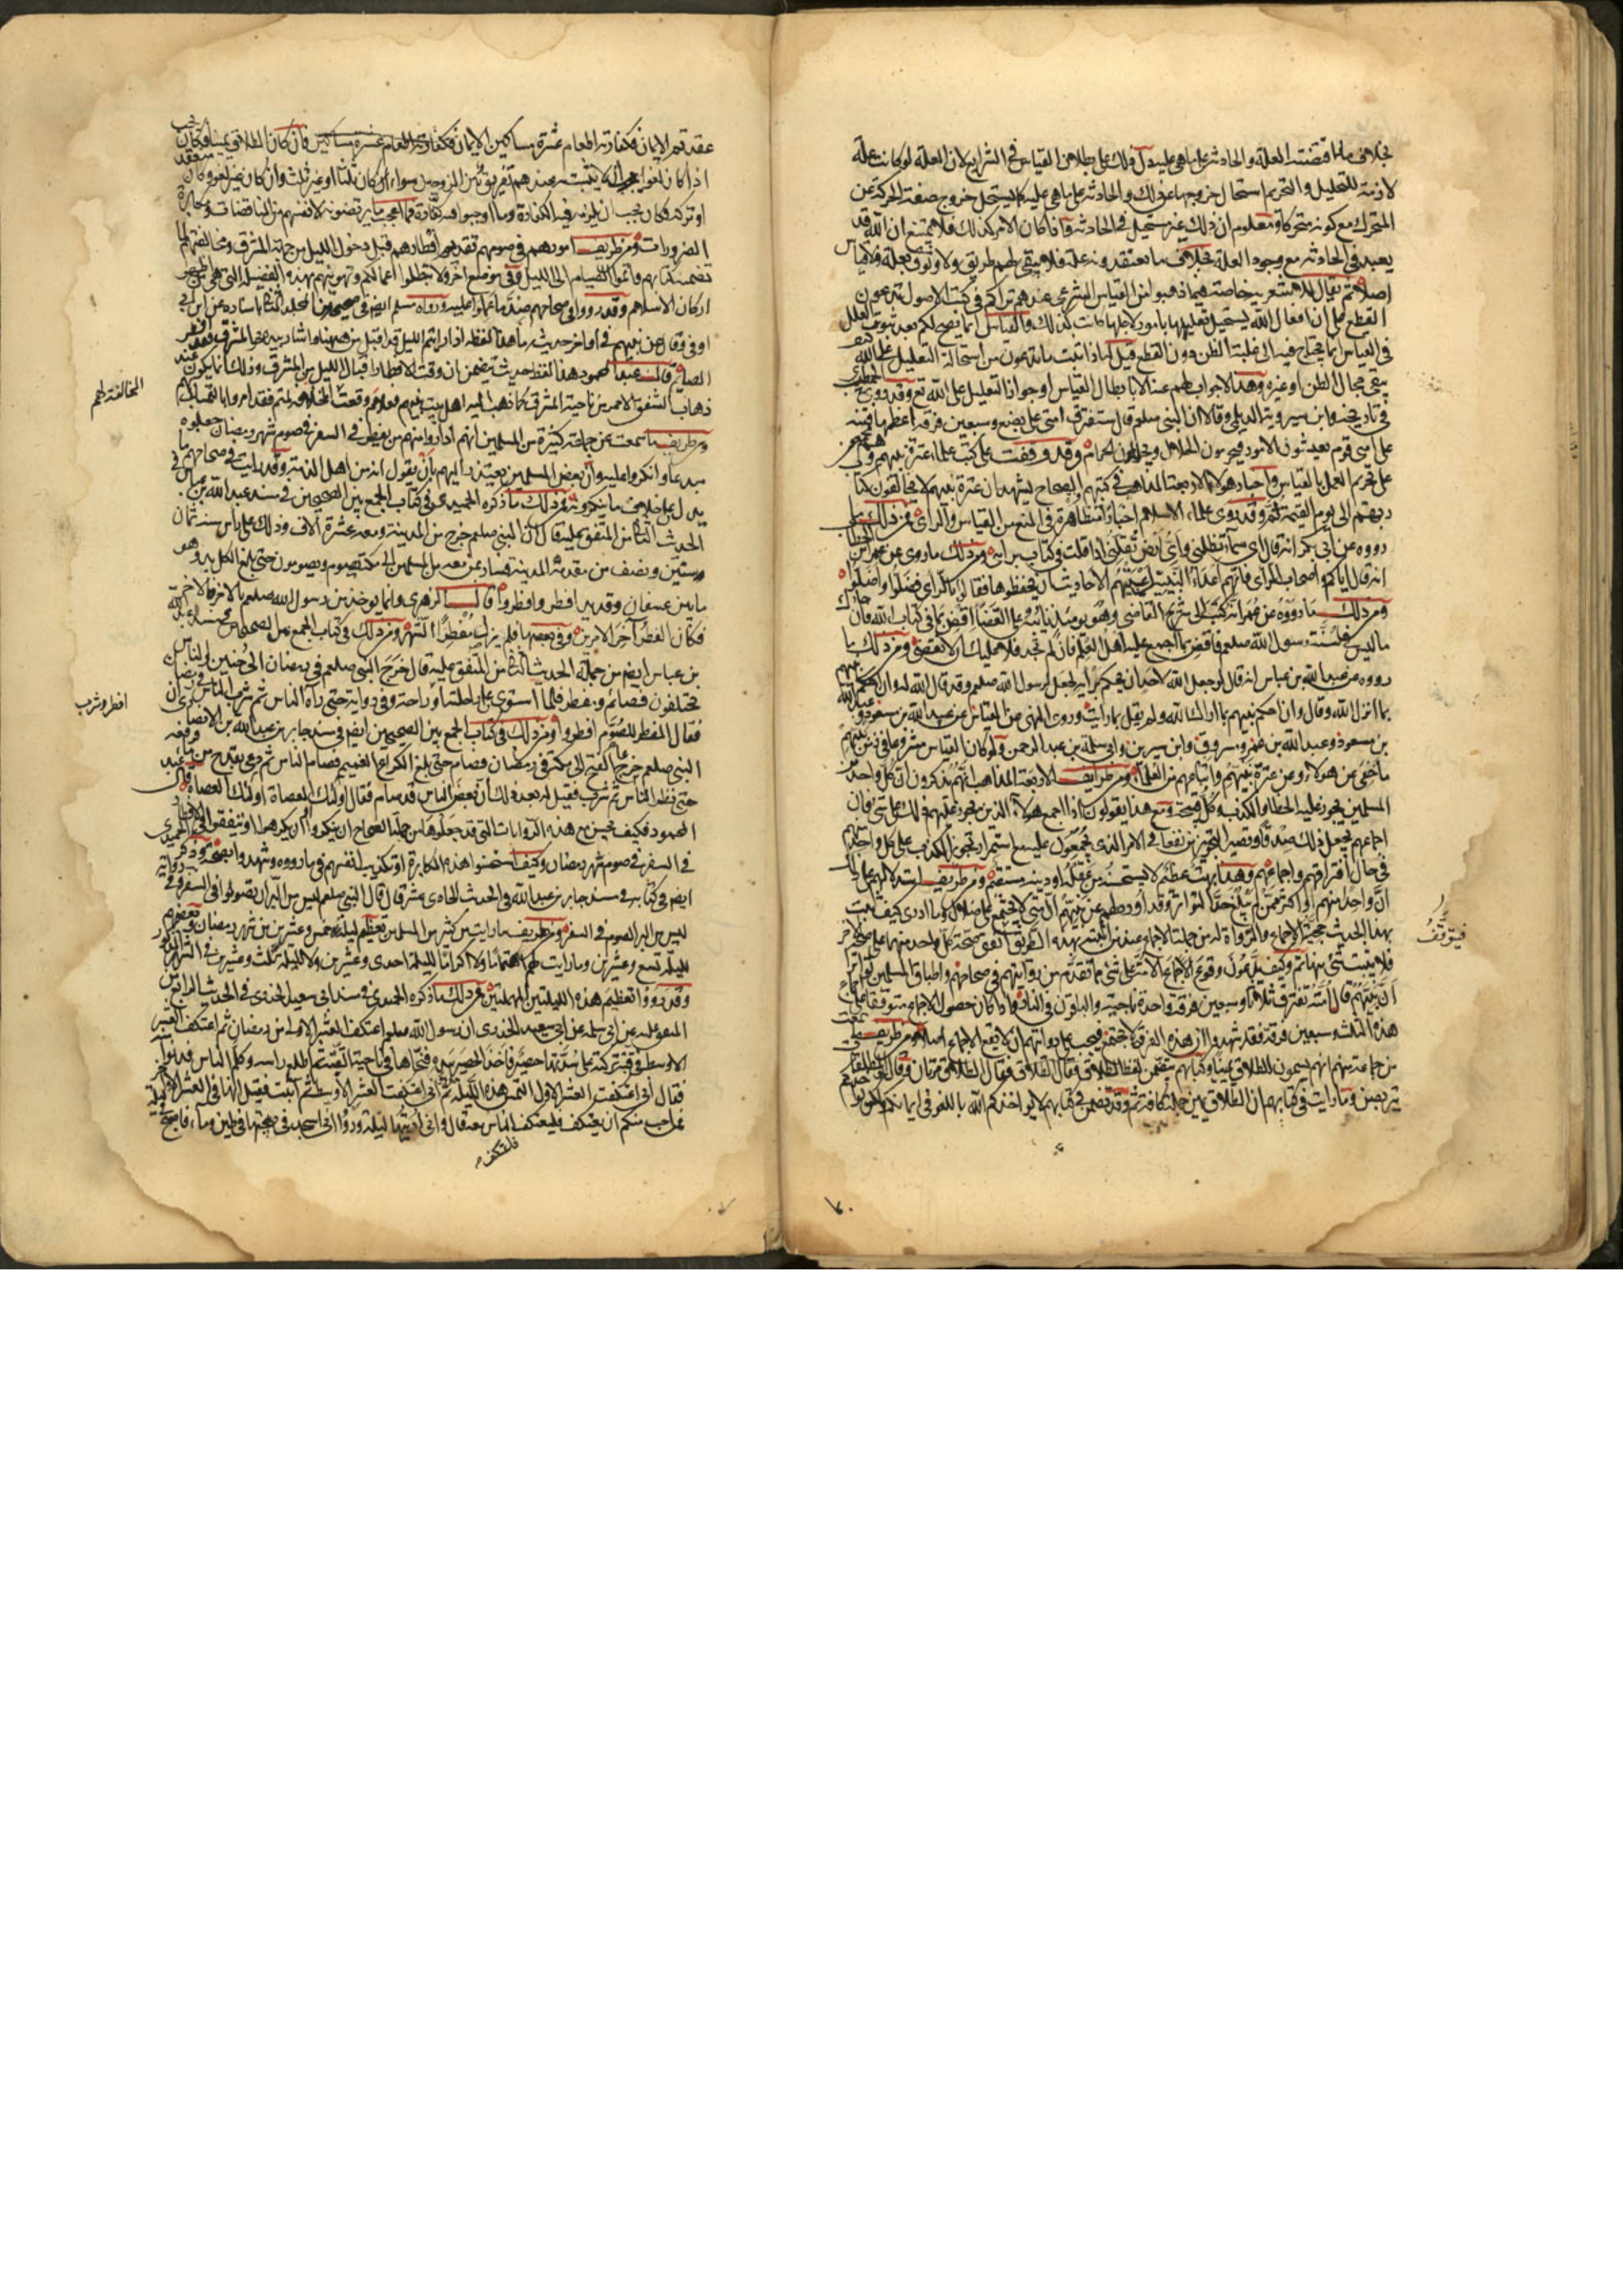 بخلاف ما اقتضته العلة والحادثة على ما هي عليه دل ذلك على بطلان القياس في الشرايع لان العلة لو كانت علة
لازمة للتحليل والتحريم استحال خروجها عن ذلك والحادثة على ما هي عليه كما يستحيل خروج صفة الحركة عن
المتحرك مع كونه متحركا ومعلوم ان ذلك غير مستحيل في الحادثة فاذا كان الامر كذلك فلا يمتنع ان الله قد
يعبد في الحادثة مع وجود العلة بخلاف ما يعتقدونه علة فلا يبقى لهم طريق ولا وثوق بعلة ولا قياس
اصلا ثم يقال للاشعرية خاصة فيما ذهبوا من القياس الشرعي عندهم تراكم في كتب الاصول تدعون
القطع على ان افعال الله يستحيل تعليلها بامور لاجلها كانت كذلك والقياس انما يصح لكم بعد ثبوت العلل
في القياس انما يحتاج فيه الى غلبة الظن دون القطع قيل لهم اذا ثبت ما تدعون من استحالة التعليل على الله
يبقى مجال الظن او غيره وهذا لا جواب لهم عنه الا بابطال القياس او جواز التعليل على الله تع وقد روى الخطيب
في تاريخه وابن سيرويه الديلمي وقالا ان النبي صلعم قال ستفترق امتي على بضع وسبعين فرقة اعظمها فتنة
على امتي قوم يعبدون الامور فيحرمون الحلال ويحلون الحرام وقد وقفت على كتب علماء عترة نبيهم
على تحريم العمل بالقياس واخبار هؤلاء الاربعة المذاهب في كتبهم الصحاح يشهد ان عترة نبيهم لا يخالفون كتاب
ربهم الى يوم القيمة وقد روى علماء الاسلام اخبارا متظاهرة في المنع من القياس والراي فمن ذلك ما
رووه عن ابي بكر انه قال اي سماء تظلني واي ارض تقلني اذا قلت في كتاب برايي ومن ذلك ما روى عن عمر ابن الخطاب
انه قال اياكم واصحاب الراي فانهم اعداء السنن اعيتهم الاحاديث ان يحفظوها فقالوا بالراي فضلوا واضلوا
ومن ذلك ما رووه عن عمر انه كتب الى شريح القاضي وهو يومئذ نائبه على القضا اقض بما في كتاب الله فان جاءك
ما ليس في سنة رسول الله صلعم فاقض بما اجمع عليه اهل العلم فان لم تجد فلا عليك ان لا تقضي ومن ذلك ما
رووه عن عبد الله بن عباس انه قال لو جعل الله لاحد ان يحكم برايه لجعل لرسول الله صلعم وقد قال الله له وان احكم بينهم
بما انزل الله وقال وان احكم بينهم بما اراك الله ولم يقل بما رايت وروى النهي عن القياس عن عبد الله بن مسعود
بن مسعود وعبد الله بن عمر ومسروق وابن سيرين وابي سلمة بن عبد الرحمن ولو كان القياس مشروعا في زمن نبيهم
ما خفي عن هؤلاء وعن عترة نبيهم واتباعهم من العلماء ومن طرايف الاربعة المذاهب انهم يذكرون ان كل واحد من
المسلمين يجوز عليه الخطا والكذب وكل قبيح ومع هذا يقولون اذا اجمع هؤلاء الذين يجوز عليهم ذلك على شيء فان
اجماعهم يجعل ذلك صدقا ويصير التجويز مرتفعا في الامر الذي يجمعون عليه مع استمرار تجويز الكذب على كل واحد منهم
في حال افتراقهم واجماعهم وهذا بهت عظيم لا يستحسنه من عقله او دينه مستقيم ومن طريف استدلالهم على ذلك
ان واحدا منهم او اكثر ممن لم يبلغ حد التواتر وقد اوردهم عن نبيهم امتي لا تجتمع على ضلال وما ادري كيف ثبت
بهذا الحديث حجية الاجماع والرواة له من جملة الاجماع عند من اثبته بهذه الطريق اتفق صحة كل واحد منهما على صحة الاخر
فلا يثبت شيء منهما ثم وكيف يدعون وقوع الاجماع الامة على شيء مع ما تقدم من رواياتهم في صحاحهم واطباق المسلمين تواترا
ان نبيهم قال امته تفترق ثلاثا وسبعين فرقة واحدة ناجية والباقون في النار فاذا كان حصول الاجماع متوقفا على
هذه الثلث وسبعين فرقة فقد شهدوا ان هذه الفرق لا تجتمع فيجب على رواتهم ان لا يقع الاجماع اصلا ومن طريف
من جماعة منهم انهم يسمون الطلاق يمينا وكتابهم يتضمن لفظ الطلاق فقال الطلاق مرتان وقال والمطلقات
يتربصن وما رايت في كتابهم ان الطلاق يمين جملة كافية ثم وقد تضمن في كتابهم لا يؤاخذكم الله باللغو في ايمانكم ولكن يؤاخذكم بما
فيتوقف
عقدتم الايمان فكفارته اطعام عشرة مساكين الايمان فكفارته اطعام عشرة مساكين فان كان الطلاق يمينا فكان يجب
اذا كان لغوا انه لا يثبت عندهم تفريق بين الزوجين سواء كان ثلثا او غير ثلث وان كان غير لغو وكان
او تركه فكان يجب ان يلزمه فيه الكفارة وما اوجبوا فيه كفارة فما اعجب ما يرتضونه لانفسهم من المناقضات ومكابرة
الضرورات ومن طريف امورهم في صومهم تقديم افطارهم قبل دخول الليل من جهة المشرق ومخالفتهم لما
تضمنه كتابهم واتموا الصيام الى الليل وفي موضع اخر ولا تبطلوا اعمالكم وتهوينهم بهذه الفضيلة التي هي من
اركان الاسلام وقد رووا في صحاحهم ضد ما عملوا عليه ورواه مسلم ايضا في صحيحه من المجلد الثاني باسناده عن ابن ابي
اوفى وقال عن نبيهم في اواخر حديث ما هذا لفظه اذا رايتم الليل قد اقبل من ههنا واشار بيده نحو المشرق فقد افطر
الصائم قال عبد المحمود هذا لفظ حديث يتضمن ان وقت الافطار اقبال الليل من المشرق وذلك انما يكون عند
ذهاب الشفق الاحمر من ناحية المشرق كما ذهب اليه اهل بيت نبيهم فعلام وقعت المخالفة لهم فقد امروا بالتمسك بهم
ومن طريف ما سمعت عن جماعة كثيرة من المسلمين انهم اذا راوا منهم من يفطر في السفر في صوم شهر رمضان جعلوه
مبدعا وانكروا عليه وان بعض المسلمين يعتذر اليهم بان يقول انه من اهل الذمة وقد رايت في صحاحهم ما
يدل على خلاف ما ينكرونه فمن ذلك ما ذكره الحميدي في كتاب الجمع بين الصحيحين في مسند عبد الله بن عباس في
الحديث الثاني من المتفق عليه قال ان النبي صلعم خرج من المدينة ومعه عشرة الاف وذلك على راس سنة ثمان
وستين ونصف من مقدمه المدينة فسار بمن معه من المسلمين الى مكة يصوم ويصومون حتى بلغ الكديد وهو
ما بين عسفان وقديد افطر وافطروا قال الزهري وانما يؤخذ من رسول الله صلعم بالاخر فالاخر
فكان الفطر اخر الامرين وفي بعضها فلم يزل مفطرا الشهر ومن ذلك في كتاب الجمع بين الصحيحين في مسند عبد الله
بن عباس ايضا من جملة الحديث الثاني من المتفق عليه قال خرج النبي صلعم في رمضان الى حنين والناس
مختلفون فصائم ومفطر فلما استوى على راحلته وفي رواية حتى راه الناس ثم شرب
فقال المفطر للصوم افطروا ومن ذلك في كتاب الجمع بين الصحيحين ايضا في مسند جابر بن عبد الله الانصاري ان
النبي صلعم خرج عام الفتح الى مكة في رمضان فصام حتى بلغ الكراع الغميم فصام الناس ثم دعى بقدح من ماء فرفعه
حتى نظر الناس ثم شرب فقيل له بعد ذلك ان بعض الناس قد صام فقال اولئك العصاة اولئك العصاة قال عبد
المحمود فكيف يحسن مع هذه الروايات التي قد جعلوها من جملة الصحاح ان ينكروا
في السفر في صوم شهر رمضان وكيف استحسنوا هذه المكابرة او تكذيب انفسهم فيما رووه وشهدوا بصحته وذكر الحميدي
ايضا في كتابه في مسند جابر بن عبد الله في الحديث الحادي عشر قال قال النبي صلعم ليس من البر ان تصوموا في السفر وفي رواية
ليس من البر الصوم في السفر ومن طريف ما رايت من كثير من المسلمين تعظيم ليلة خمس وعشرين من شهر رمضان
ليلة تسع وعشرين وما رايت لهم اهتماما ولا اكراما لليلة احدى وعشرين ولا لليلة ثلث وعشرين
وقد رووا تعظيم هذه الليلتين المهملتين فمن ذلك ما ذكره الحميدي في مسند ابي سعيد الخدري في الحديث الرابع من
المتفق عليه عن ابي سلمة عن ابي سعيد الخدري ان رسول الله صلعم اعتكف العشر الاول من رمضان ثم اعتكف العشر
الاوسط في قبة تركية على سدتها حصير فاخذ الحصير بيده فنحاها في ناحية القبة ثم اطلع راسه وكلم الناس فدنوا منه
فقال اني اعتكفت العشر الاول التمس هذه الليلة ثم اني اعتكفت العشر الاوسط ثم اتيت فقيل لي انها في العشر الاواخر
فمن احب منكم ان يعتكف فليعتكف الناس معه قال واني اريتها ليلة وتر واني اسجد في صبيحتها في طين وماء فاصبح
فاعتكف
المخالفة لهم
افطر وشرب